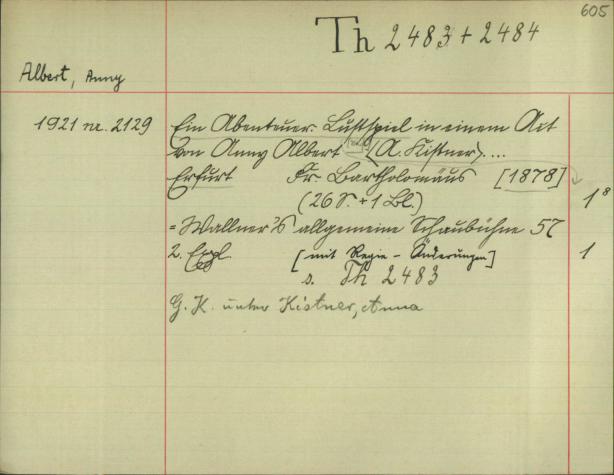 605
Th 2483 + 2484
Albert, Anny
1921 nr. 2129 Ein Abenteuer. Lustspiel in einem Act
von Anny Albert (A. Kistner). ...
Erfurt Fr. Bartholomäus [1878]
(26 S. + 1 Bl.) 1 8
= Wallner's allgemeine Schaubühne 57
2. Expl. [mit Regie-Änderungen] 1
s. Th 2483
G. K. unter Kistner, Anna